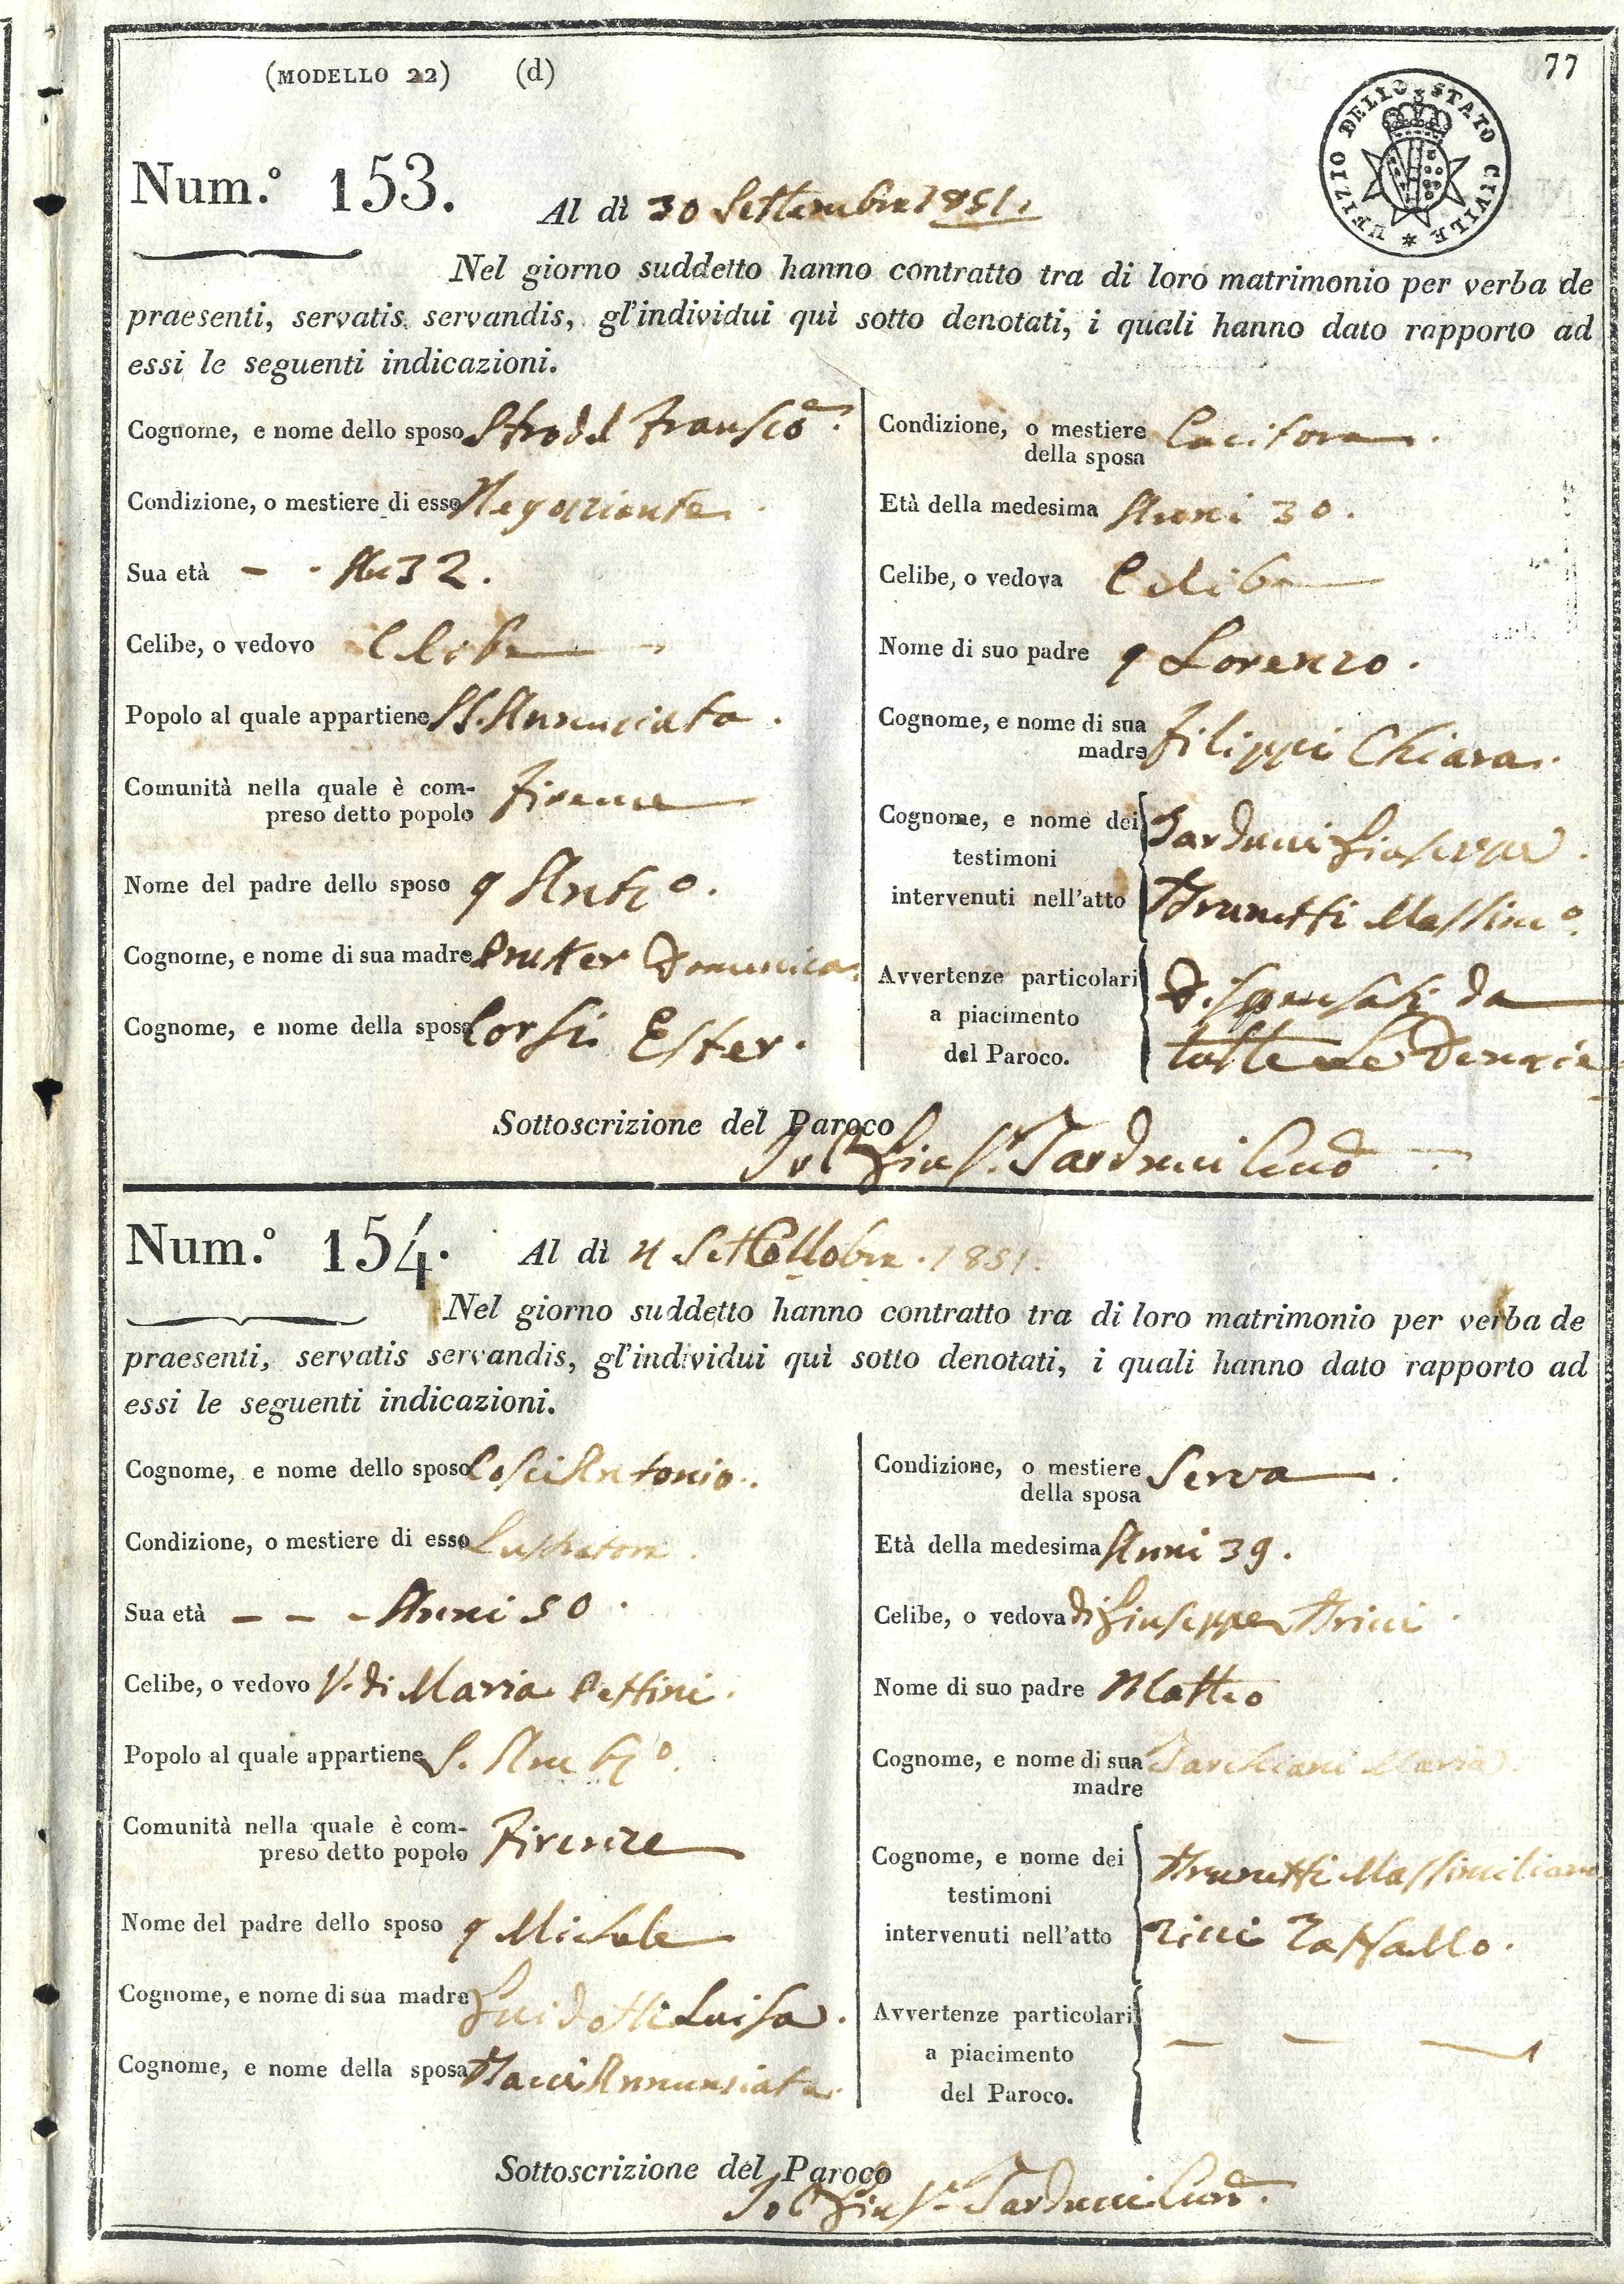 (MODELLO 22) (d)
77
UFIZIO DELLO STATO CIVILE
Num.º 153.
Al dì 30 Settembre 1851.
Nel giorno suddetto hanno contratto tra di loro matrimonio per verba de
praesenti, servatis servandis, gl'individui quì sotto denotati, i quali hanno dato rapporto ad
essi le seguenti indicazioni.
Cognome, e nome dello sposo Strodel Fransco
Condizione, o mestiere di esso Negoziante.
Sua età - - An 32.
Celibe, o vedovo Celibe
Popolo al quale appartiene SS. Annunziata.
Comunità nella quale è com-
preso detto popolo Firenze
Nome del padre dello sposo q Antº.
Cognome, e nome di sua madre Domenica
Cognome, e nome della sposa Corsi Ester.
Condizione, o mestiere
della sposa Cucitora.
Età della medesima Anni 30.
Celibe, o vedova Celibe
Nome di suo padre q Lorenzo.
Cognome, e nome di sua
madre Filippi Chiara.
Cognome, e nome dei
testimoni
intervenuti nell'atto
Tarducci Giuseppe.
Brunetti Massimº.
Avvertenze particolari
a piacimento
del Paroco.
Dispensati da
tutte le Denunzie
Sottoscrizione del Paroco
Giusᵉ. Tarducci
Num.º 154.
Al dì 4 Ottobre. 1851.
Nel giorno suddetto hanno contratto tra di loro matrimonio per verba de
praesenti, servatis servandis, gl'individui quì sotto denotati, i quali hanno dato rapporto ad
essi le seguenti indicazioni.
Cognome, e nome dello sposo Cosci Antonio.
Condizione, o mestiere di esso
Sua età - - - Anni 50.
Celibe, o vedovo V. di Maria Pettini.
Popolo al quale appartiene S. Ambº.
Comunità nella quale è com-
preso detto popolo Firenze
Nome del padre dello sposo q Michele
Cognome, e nome di sua madre Guidotti Luisa.
Cognome, e nome della sposa Annunziata.
Condizione, o mestiere
della sposa Serva.
Età della medesima Anni 39.
Celibe, o vedova di Giuseppe Bricci
Nome di suo padre Matteo
Cognome, e nome di sua
madre Tarchiani Maria.
Cognome, e nome dei
testimoni
intervenuti nell'atto
Brunetti Massimiliano
Ricci Raffaello.
Avvertenze particolari
a piacimento
del Paroco.
Sottoscrizione del Paroco
Giusᵉ. Tarducci